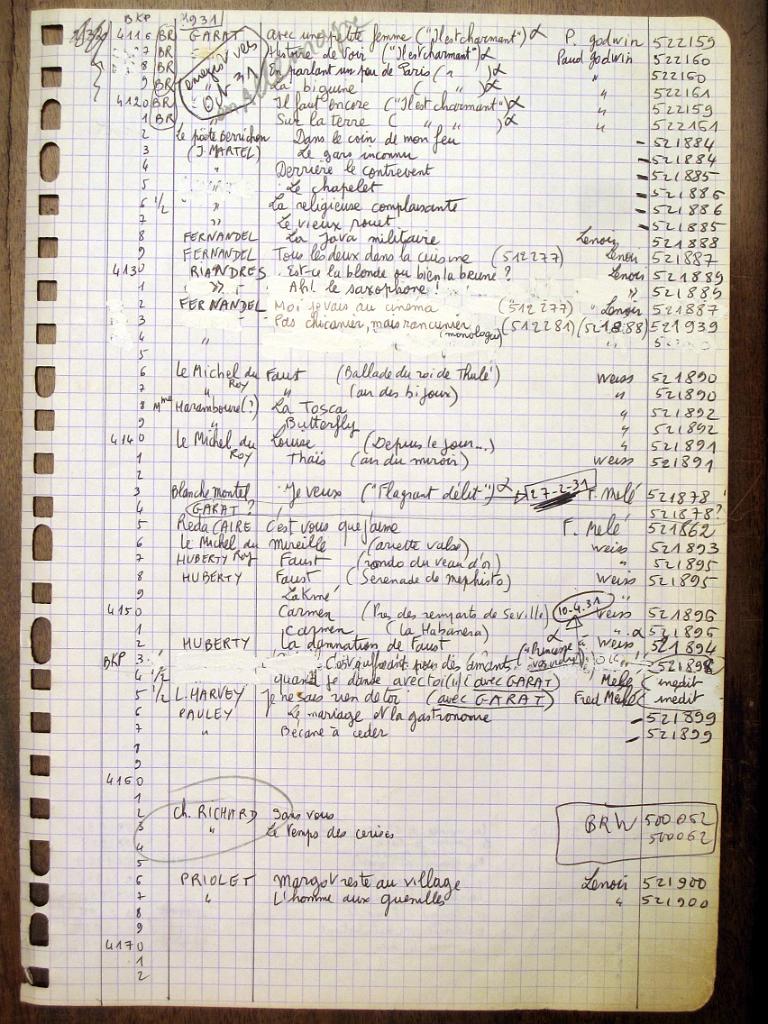 BKP 1931
4116 BR GARAT avec une petite femme ("Il est charmant") α P. Godwin 522159
7 BR Histoire de voir ("Il est charmant") α Paul Godwin 522160
8 BR En parlant un peu de Paris ( " ) α " 522160
9 BR " La biguine ( " ) α " 522161
4120 BR Il faut encore ("Il est charmant") α " 522159
1 BR " Sur la terre ( " " ) α " 522161
2 Le poète Berrichon Dans le coin de mon feu - 521884
3 (J. MARTEL) Le gars inconnu - 521884
4 " Derrière le contrevent - 521885
5 Le chapelet - 521886
6 1/2 " La religieuse complaisante - 521886
7 " Le vieux rouet - 521885
8 FERNANDEL La java militaire Lenoir 521888
9 FERNANDEL Tous les deux dans la cuisine (512277) Lenoir 521887
4130 RIANDRES Est-ce la blonde ou bien la brune ? Lenoir 521889
1 " Ah! le saxophone ! " 521889
2 FERNANDEL Moi je vais au cinema (512277) " Lenoir 521887
3 " Pas chicanier, mais rancunier (monologue) (512281) (521888) 521939
4 "
5
6 Le Michel du Roy Faust (Ballade du roi de Thulé) Weiss 521890
7 " " (air des bijoux) " 521890
8 Mme Haramboure (?) La Tosca " 521892
9 " Butterfly " 521892
4140 Le Michel du Roy Louise (Depuis le jour...) " 521891
1 Thaïs (air du miroir) Weiss 521891
2
3 Blanche Montel Je veux ("Flagrant délit") α → 27-2-31 F. Melé 521878
4 GARAT ? 521878?
5 Réda CAIRE C'est vous que j'aime F. Melé 521862
6 Le Michel du Roy Mireille (ariette valse) Weiss 521893
7 HUBERTY Faust (rondo du veau d'or) " 521895
8 HUBERTY Faust (Sérénade de Mephisto) Weiss 521895
9 Lakmé "
4150 Carmen (Près des remparts de Seville) 10-4.31 Weiss 521896
1 Carmen (la Habanera) α " α 521896
2 HUBERTY La damnation de Faust Weiss 521894
BKP 3 C'est qu'seant pour des amants! 521898
4 1/2 quand je danse avec toi (avec GARAT) Melé (inedit
5 1/2 L. HARVEY Je ne sais rien de toi (avec GARAT) Fred Melé (inedit
6 PAULEY Le mariage et la gastronomie - 521899
7 " Becane à ceder - 521899
8
9
4160
1
2 Ch. RICHARD Sans vous BRW 500062
3 " Le temps des cerises 500062
4
5
6 PRIOLET Margot reste au village Lenoir 521900
7 " L'homme aux guenilles " 521900
8
9
4170
1
2